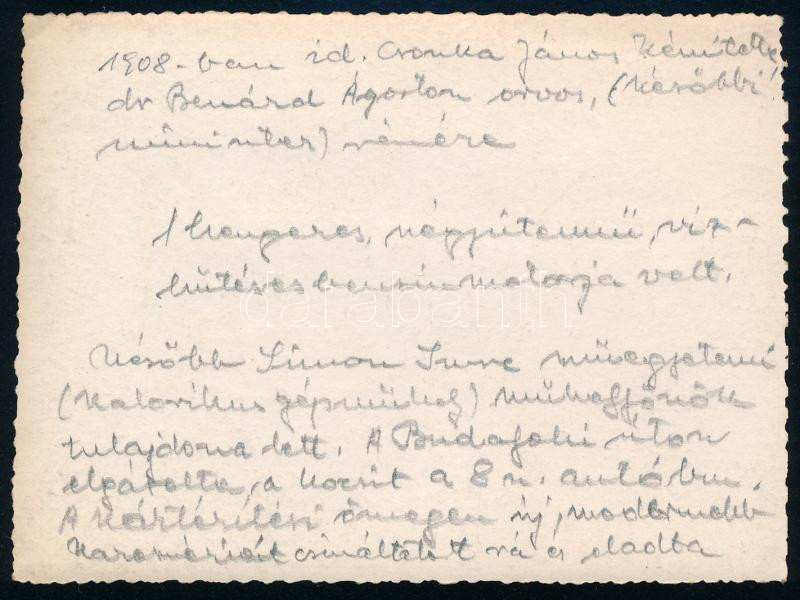 1908-ban id. Csonka János készítette
dr Benárd Ágoston orvos, (későbbi
miniszter) részére
1 hengeres, négyütemű, víz-
hűtéses benzinmotorja volt.
Később Simon Imre műegyetemi
(Kalorikus gépműhely) műhelyfőnök
tulajdona lett. A Budafoki úton
elgázolta a kocsit a 8 n. autóbusz.
A kártérítési összegen új, modernebb
karosszériát csináltatott rá és eladta
darabanth